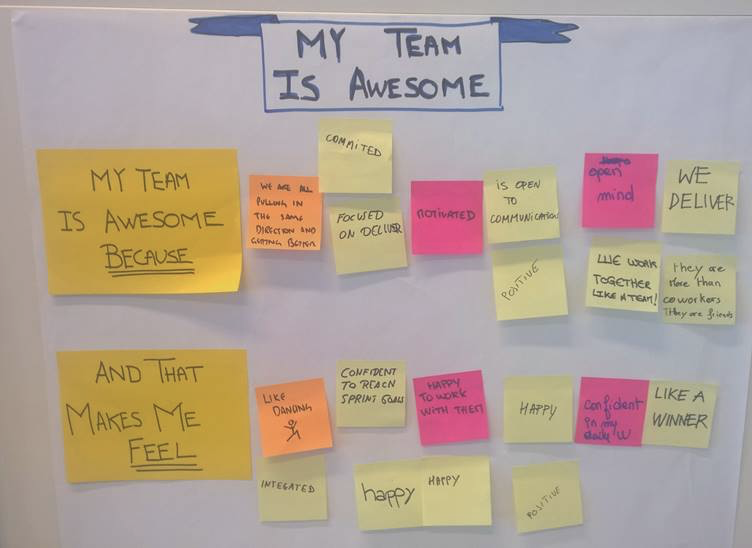 MY TEAM
IS AWESOME
MY TEAM
IS AWESOME
BECAUSE
WE ARE ALL
PULLING IN
THE SAME
DIRECTION AND
GETTING BETTER
COMMITED
FOCUSED
ON DELIVER
MOTIVATED
IS OPEN
TO
COMMUNICATION
POSITIVE
open
mind
WE
DELIVER
WE WORK
TOGETHER
LIKE A TEAM!
they are
More than
coworkers
They are friends
AND THAT
MAKES ME
FEEL
LIKE
DANCING
INTEGATED
CONFIDENT
TO REACH
SPRINT GOALS
happy
HAPPY
HAPPY
TO WORK
WITH THEM
HAPPY
POSITIVE
confident
in my
daily W
LIKE A
WINNER